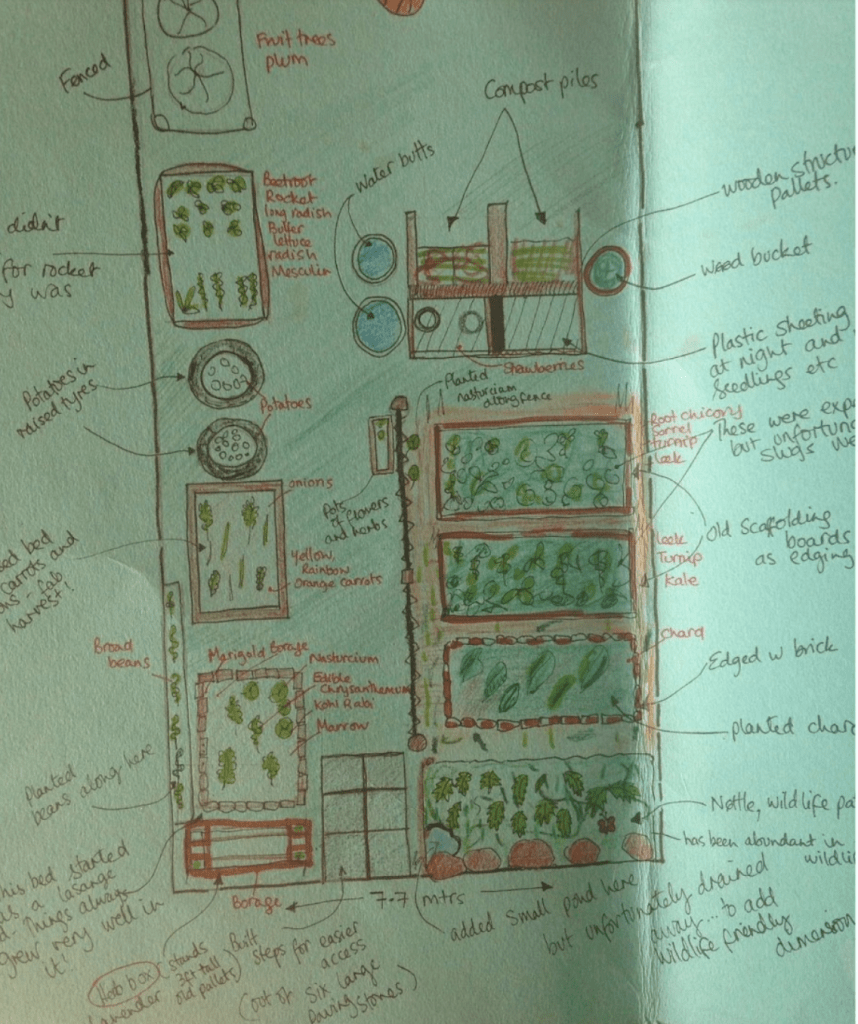 Fruit trees
plum
Fenced
Compost piles
Water butts
wooden structu
pallets.
Beetroot
Rocket
long radish
Butter
lettuce
radish
Mesculin
didn't
for rocket
y was
weed bucket
Plastic sheeting
at night and
Seedlings etc
Strawberries
Planted
nasturcium
along fence
Potatoes in
raised tyres
Potatoes
Root chicory
Sorrel
turnip
leek
These were expe
but unfortuna
slugs we
onions
Pots
of flowers
and herbs
Old Scaffolding
boards
as edging
leek
Turnip
Kale
sed bed
carrots and
ons - fab
harvest!
Yellow,
Rainbow
orange carrots
Broad
beans
Marigold Borage
Nasturcium
Edible
Chrysanthemum
Kohl Rabi
Marrow
Chard
Edged w brick
planted char
Planted
beans along here
Nettle, wildlife pa
has been abundant in
wildli
This bed started
as a lasange
d. Things always
grew very well in
it!
Borage
7.7 mtrs
added small pond here
but unfortunately drained
away... to add
wildlife friendly
dimension
Hot box stands
lavender 3ft tall
old pallets
Built
steps for easier
access
(out of six large
paving stones)